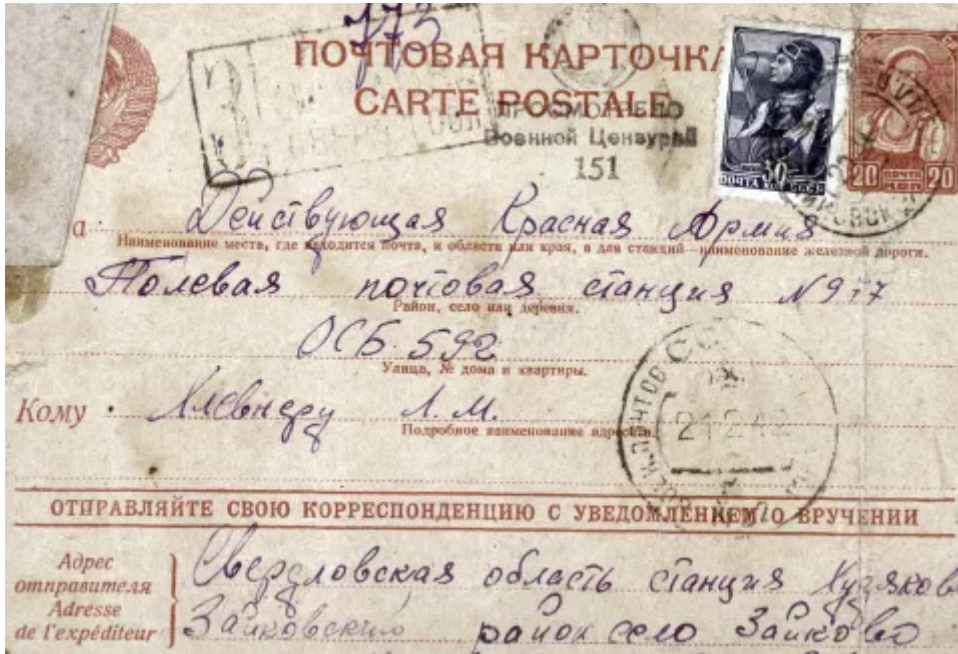 773
ПОЧТОВАЯ КАРТОЧКА
CARTE POSTALE
ПРОСМОТРЕНО
Военной Цензурой
151
30
ПОЧТА
20 ПОЧТА 20
Действующая Красная Армия
Наименование места, где находится почта, и области или края, а для станций—наименование железной дороги.
Полевая почтовая станция N977
Район, село или деревня.
ОСБ 592
Улица, № дома и квартиры.
Кому
Л. М.
Подробное наименование адресата.
21 2 42
ОТПРАВЛЯЙТЕ СВОЮ КОРРЕСПОНДЕНЦИЮ С УВЕДОМЛЕНИЕМ О ВРУЧЕНИИ
Адрес отправителя
Adresse de l'expéditeur
Свердловская область станция Худяково
Зайковский район село Зайково